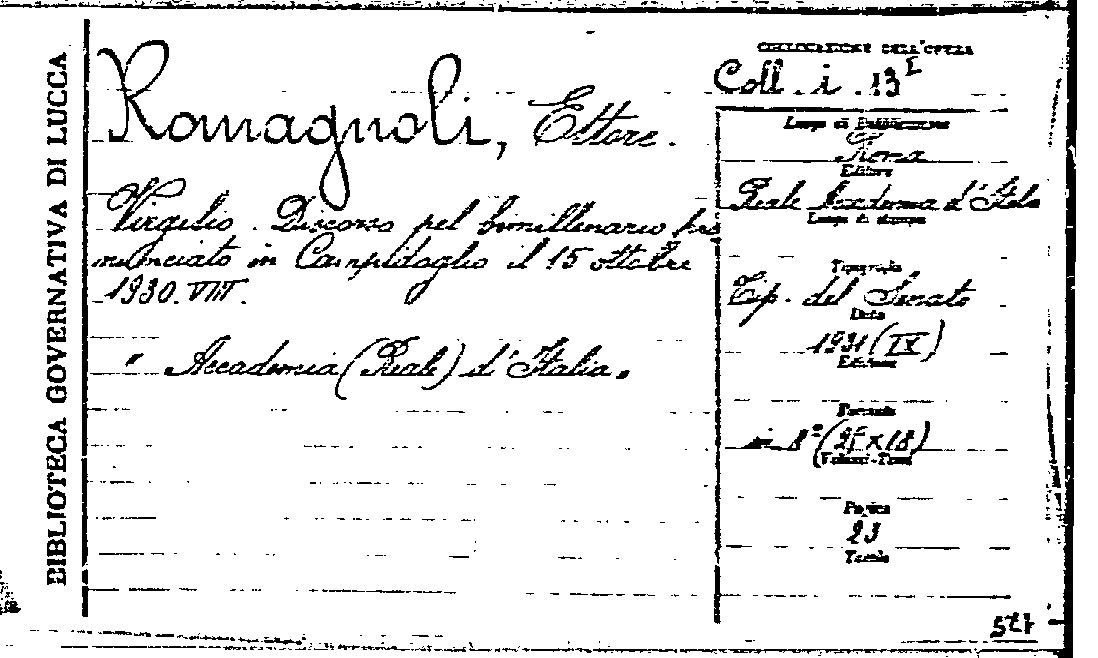 BIBLIOTECA GOVERNATIVA DI LUCCA
Romagnoli, Ettore.
Virgilio. Discorso pel bimillenario pro
nunciato in Campidoglio il 15 ottobre
1930. VIII.
" Accademia (Reale) d'Italia.
COLLOCAZIONE DELL'OPERA
Coll. i. 13
Luogo di Pubblicazione
Roma
Editore
Reale Accademia d'Italia
Luogo di stampa
Tipografia
Tip. del Senato
Data
1931 (IX)
Edizione
Formato
in 8° (25 x 18)
(Volumi-Tomi
Pagine
23
Tavole